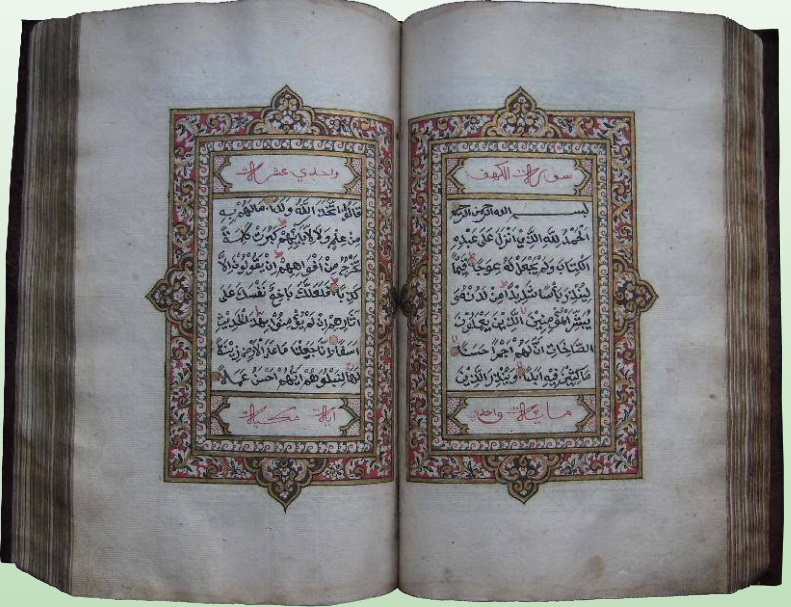 سورة الكهف
بسم الله الرحمن الرحيم
اَلْحَمْدُ لِلَّهِ الَّذِي اَنْزَلَ عَلَى عَبْدِهِ
الْكِتَابَ وَلَمْ يَجْعَلْ لَهُ عِوَجًا قَيِّمًا
لِيُنْذِرَ بَأْسًا شَدِيدًا مِنْ لَدُنْهُ وَ
يُبَشِّرَ الْمُؤْمِنِينَ الَّذِينَ يَعْمَلُونَ
الصَّالِحَاتِ اَنَّ لَهُمْ اَجْرًا حَسَنًا
مَاكِثِينَ فِيهِ اَبَدًا وَيُنْذِرَ الَّذِينَ
ماية واحدي
واحدي عشرة
قَالُوا اتَّخَذَ اللَّهُ وَلَدًا مَالَهُمْ بِهِ
مِنْ عِلْمٍ وَلَا لِاَبَائِهِمْ كَبُرَتْ كَلِمَةً
تَخْرُجُ مِنْ اَفْوَاهِهِمْ اِنْ يَقُولُونَ اِلَّا
كَذِبًا فَلَعَلَّكَ بَاخِعٌ نَفْسَكَ عَلَى
اٰثَارِهِمْ اِنْ لَمْ يُؤْمِنُوا بِهَذَا الْحَدِيثِ
اَسَفًا اِنَّا جَعَلْنَا مَا عَلَى الْاَرْضِ زِينَةً
لَهَا لِنَبْلُوَهُمْ اَيُّهُمْ اَحْسَنُ عَمَلًا
اية مكية